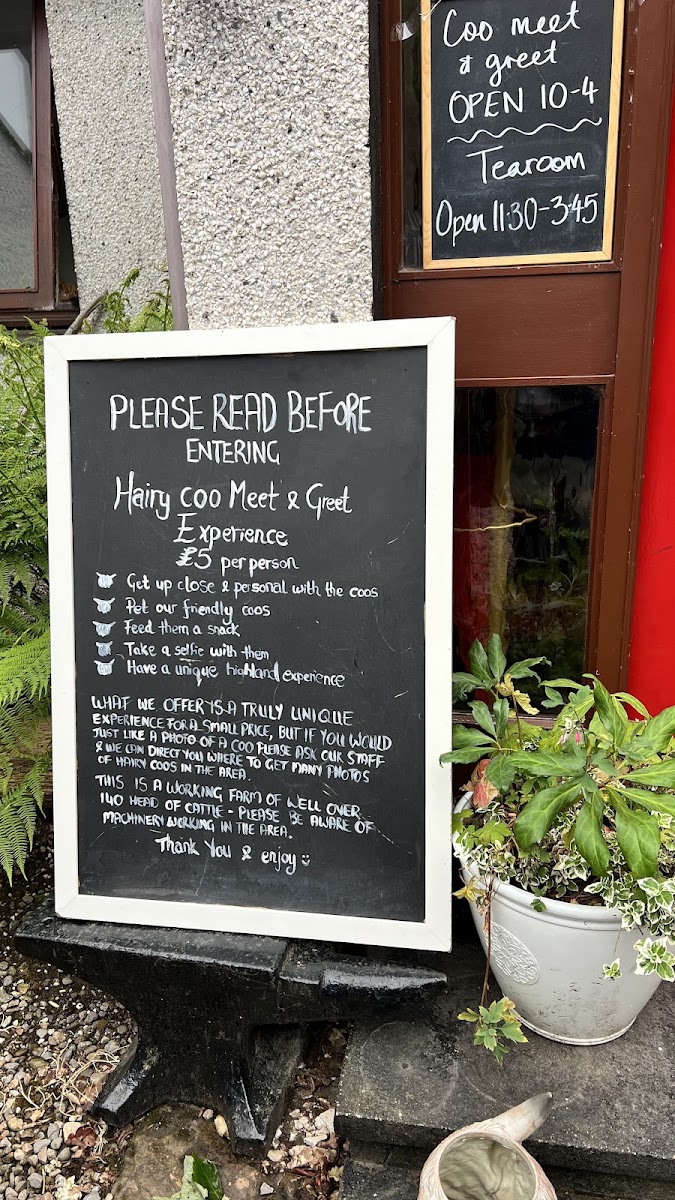 Coo meet
& greet
OPEN 10-4
Tearoom
Open 11:30-3:45
PLEASE READ BEFORE
ENTERING
Hairy coo Meet & Greet
Experience
£5 per person
Get up close & personal with the coos
Pet our friendly coos
Feed them a snack
Take a selfie with them
Have a unique highland experience
WHAT WE OFFER IS A TRULY UNIQUE
EXPERIENCE FOR A SMALL PRICE, BUT IF YOU WOULD
JUST LIKE A PHOTO OF A COO PLEASE ASK OUR STAFF
& WE CAN DIRECT YOU WHERE TO GET MANY PHOTOS
OF HAIRY COOS IN THE AREA.
THIS IS A WORKING FARM OF WELL OVER
140 HEAD OF CATTLE - PLEASE BE AWARE OF
MACHINERY WORKING IN THE AREA.
Thank You & enjoy